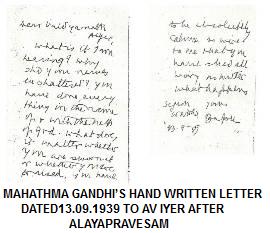 Dear Vaidyanath
Aiyer,
what is it I am
hearing? Why
are you nerves
shattered? You
have done every
thing in the name
of & with the help
of God. What does
it matter whether
you are
or
you have
to be absolutely
calm &
to me that you
have shed all
worry no matter
what happens
yours
Bapu
13-9-39
MAHATHMA GANDHI'S HAND WRITTEN LETTER
DATED13.09.1939 TO AV IYER AFTER
ALAYAPRAVESAM